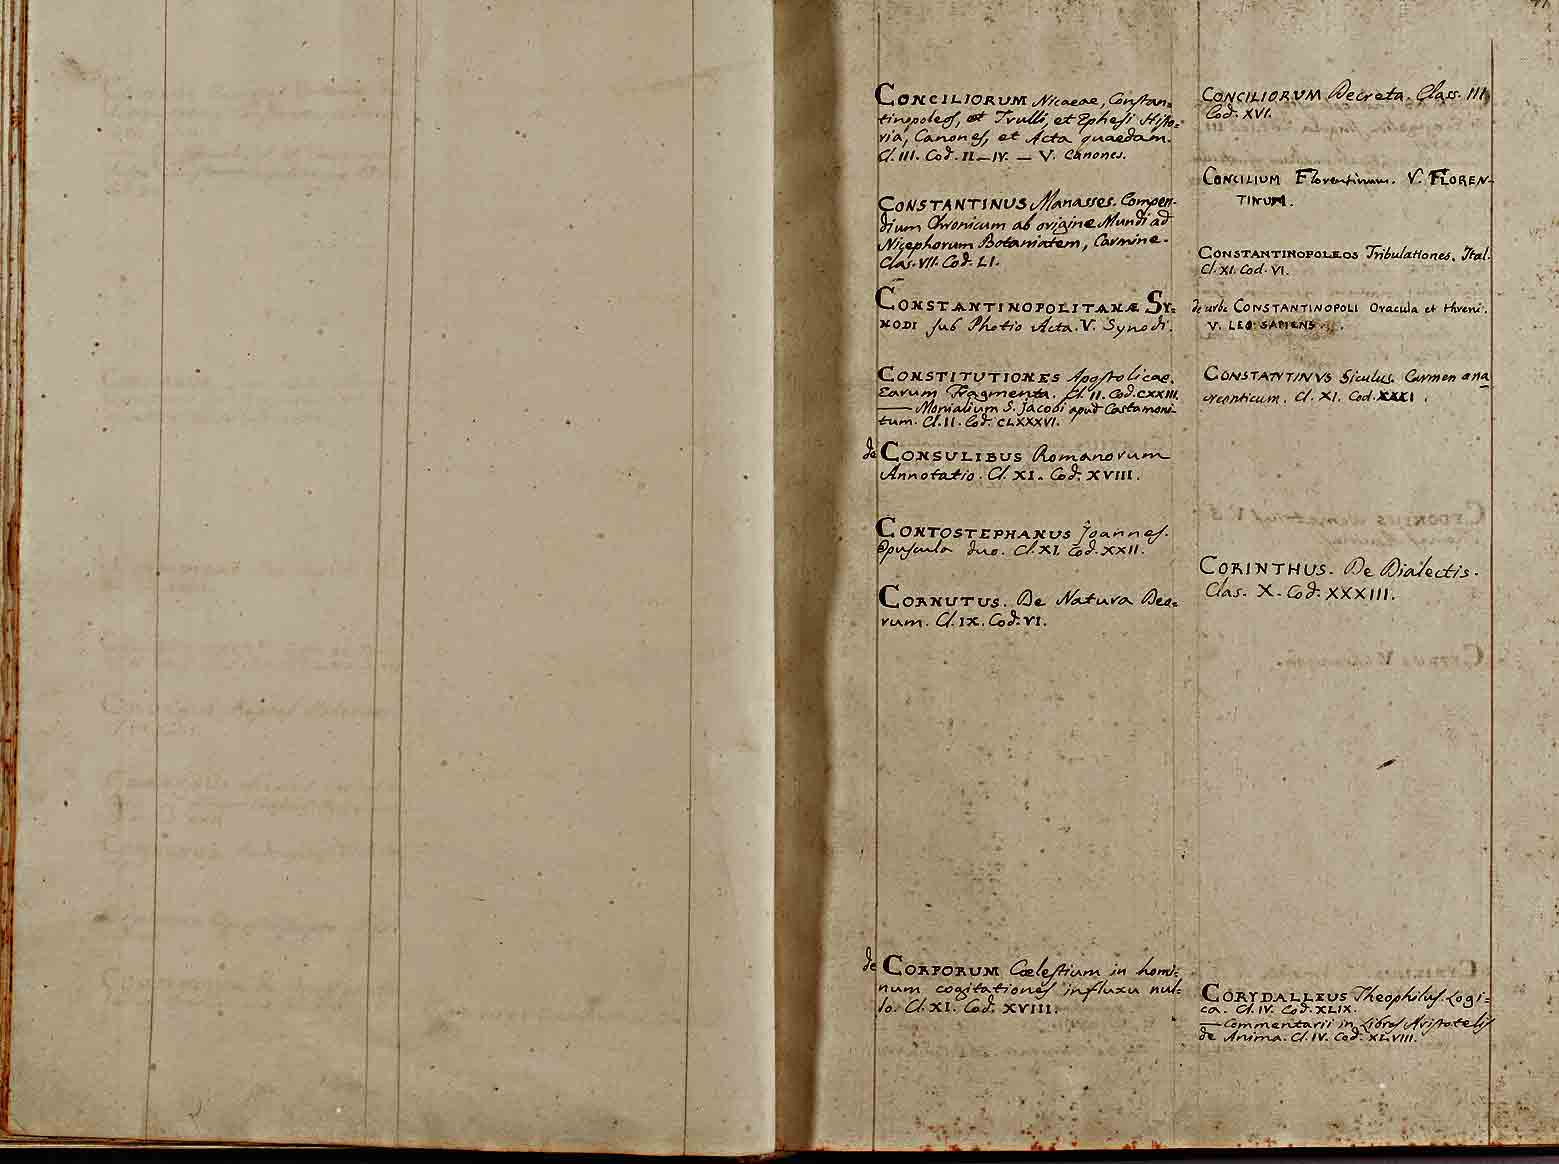 CONCILIORUM Nicaeae, Constan=
tinopoleos, et Trulli, et Ephesi Histo=
ria, Canones, et Acta quaedam.
Cl. III. Cod. II—IV. — V. Canones.
CONSTANTINUS Manasses. Compen-
dium Chronicum ab origine Mundi ad
Nicephorum Botaniatem, Carmine.
Clas. VII. Cod. LI.
CONSTANTINOPOLITANÆ SY=
NODI sub Photio Acta. V. Synodi.
CONSTITUTIONES Apostolicae.
Earum Fragmenta. Cl. II. Cod. CXXIII.
— Monialium S. Jacobi apud Castamoni-
tum. Cl. II. Cod. CLXXXVI.
de CONSULIBUS Romanorum
Annotatio. Cl. XI. Cod. XVIII.
CONTOSTEPHANUS Joannes.
Opuscula duo. Cl. XI. Cod. XXII.
CORNUTUS. De Natura Deo=
rum. Cl. IX. Cod. VI.
de CORPORUM Cœlestium in homi=
num cogitationes influxu nul=
lo. Cl. XI. Cod. XVIII.
CONCILIORUM Decreta. Class. III.
Cod. XVI.
CONCILIUM Florentinum. V. FLOREN-
TINUM.
CONSTANTINOPOLEOS Tribulationes. Ital.
Cl. XI. Cod. VI.
de urbe CONSTANTINOPOLI Oracula et threni.
V. LEO SAPIENS.
CONSTANTINVS Siculus. Carmen ana
creonticum. Cl. XI. Cod. XXXI.
CORINTHUS. De Dialectis.
Clas. X. Cod. XXXIII.
CORYDALLEUS Theophilus. Logi=
ca. Cl. IV. Cod. XLIX.
— Commentarii in Libros Aristotelis
de Anima. Cl. IV. Cod. XLVIII.